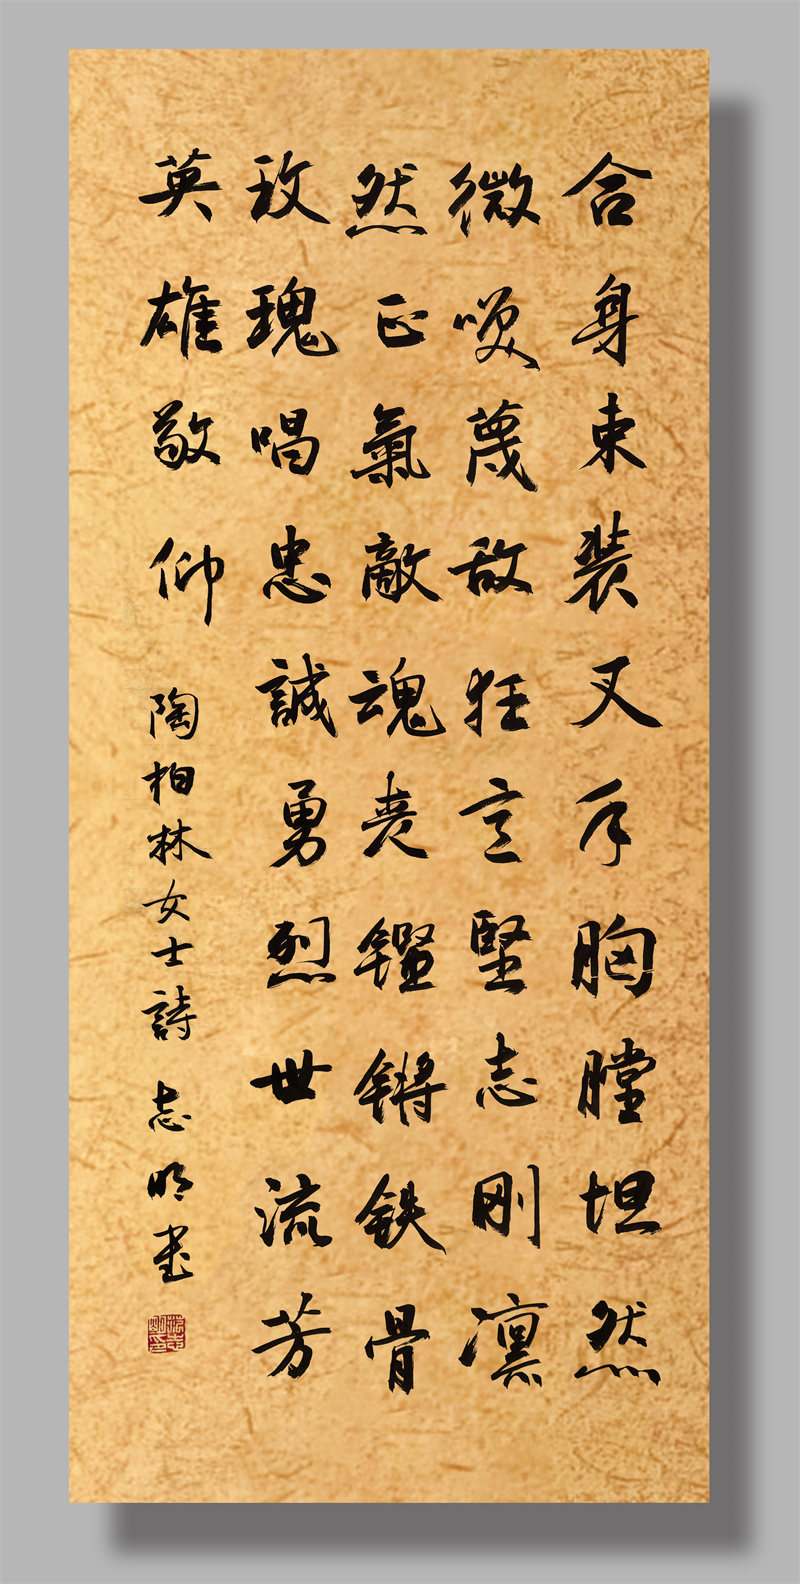 合身束装叉手胸膛坦然
微唉蔑敌狂言堅志刚凛
然正氣敵魂丧鏗锵铁骨
玫瑰唱忠誠勇烈世流芳
英雄敬仰 陶柏林女士詩 志明书